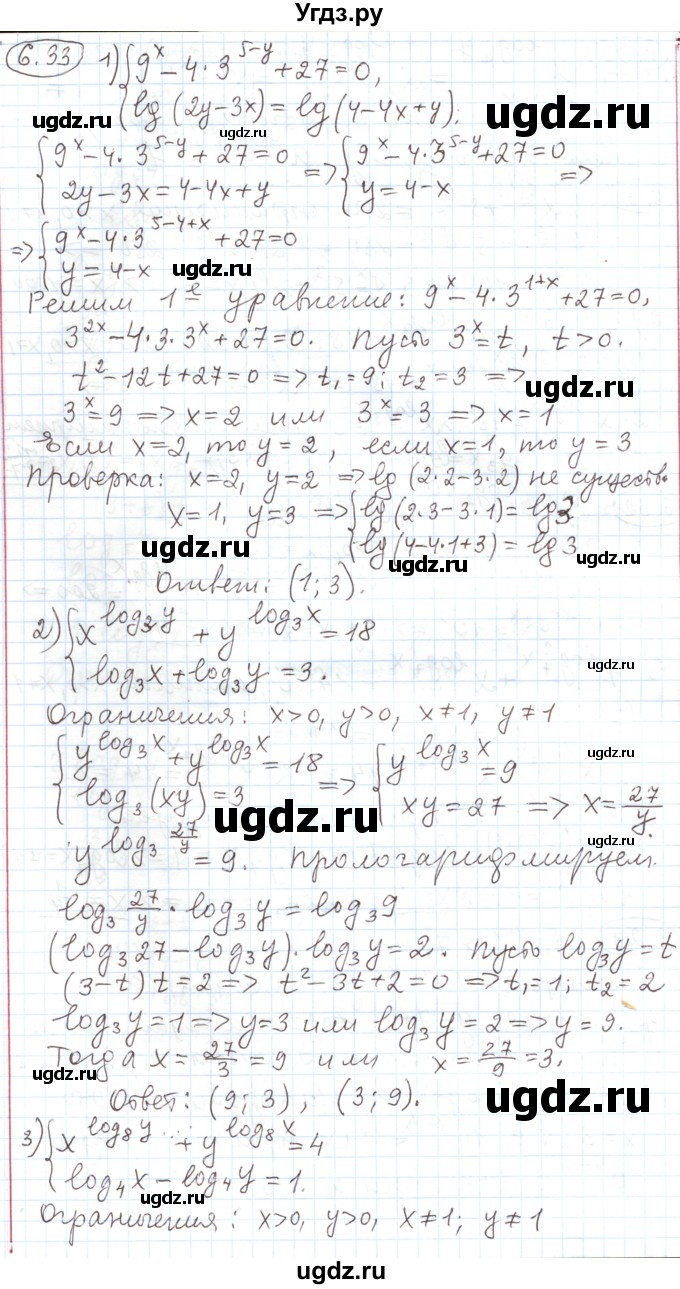 Угдз.ру
6.33 1) { 9^x − 4·3^(5−y) + 27 = 0,
lg (2y−3x) = lg (4−4x+y).
ugdz.ru ugdz.ru
{ 9^x − 4·3^(5−y) + 27 = 0 => { 9^x − 4·3^(5−y) + 27 = 0 =>
2y − 3x = 4 − 4x + y y = 4 − x
=> { 9^x − 4·3^(5−4+x) + 27 = 0
y = 4 − x ugdz.ru
Решим 1е уравнение: 9^x − 4·3^(1+x) + 27 = 0,
3^(2x) − 4·3·3^x + 27 = 0. Пусть 3^x = t, t > 0.
t² − 12t + 27 = 0 => t₁ = 9; t₂ = 3 =>
ugdz.ru
3^x = 9 => x = 2 или 3^x = 3 => x = 1
Если x = 2, то y = 2, если x = 1, то y = 3
Проверка: x = 2, y = 2 => lg (2·2−3·2) не существ.
x = 1, y = 3 => { lg (2·3−3·1) = lg 3
ugdz.ru
lg (4−4·1+3) = lg 3
ugdz.ru ugdz.ru
Ответ: (1; 3).
2) { x^(log₃y) + y^(log₃x) = 18
log₃x + log₃y = 3.
ugdz.ru
Ограничения: x > 0, y > 0, x ≠ 1, y ≠ 1
{ y^(log₃x) + y^(log₃x) = 18 => { y^(log₃x) = 9
log₃(xy) = 3 xy = 27 => x = 27/y.
ugdz.ru ugdz.ru
y^(log₃ 27/y) = 9. Прологарифмируем.
log₃ 27/y · log₃y = log₃9
(log₃27 − log₃y)·log₃y = 2. Пусть log₃y = t
(3−t) t = 2 => t² − 3t + 2 = 0 => t₁ = 1; t₂ = 2
log₃y = 1 => y = 3 или log₃y = 2 => y = 9.
Тогда x = 27/3 = 9 или x = 27/9 = 3.
ugdz.ru ugdz.ru
Ответ: (9; 3), (3; 9).
ugdz.ru
3) { x^(log₈y) + y^(log₈x) = 4
log₄x − log₄y = 1.
ugdz.ru ugdz.ru
Ограничения: x > 0, y > 0, x ≠ 1; y ≠ 1
ugdz.ru